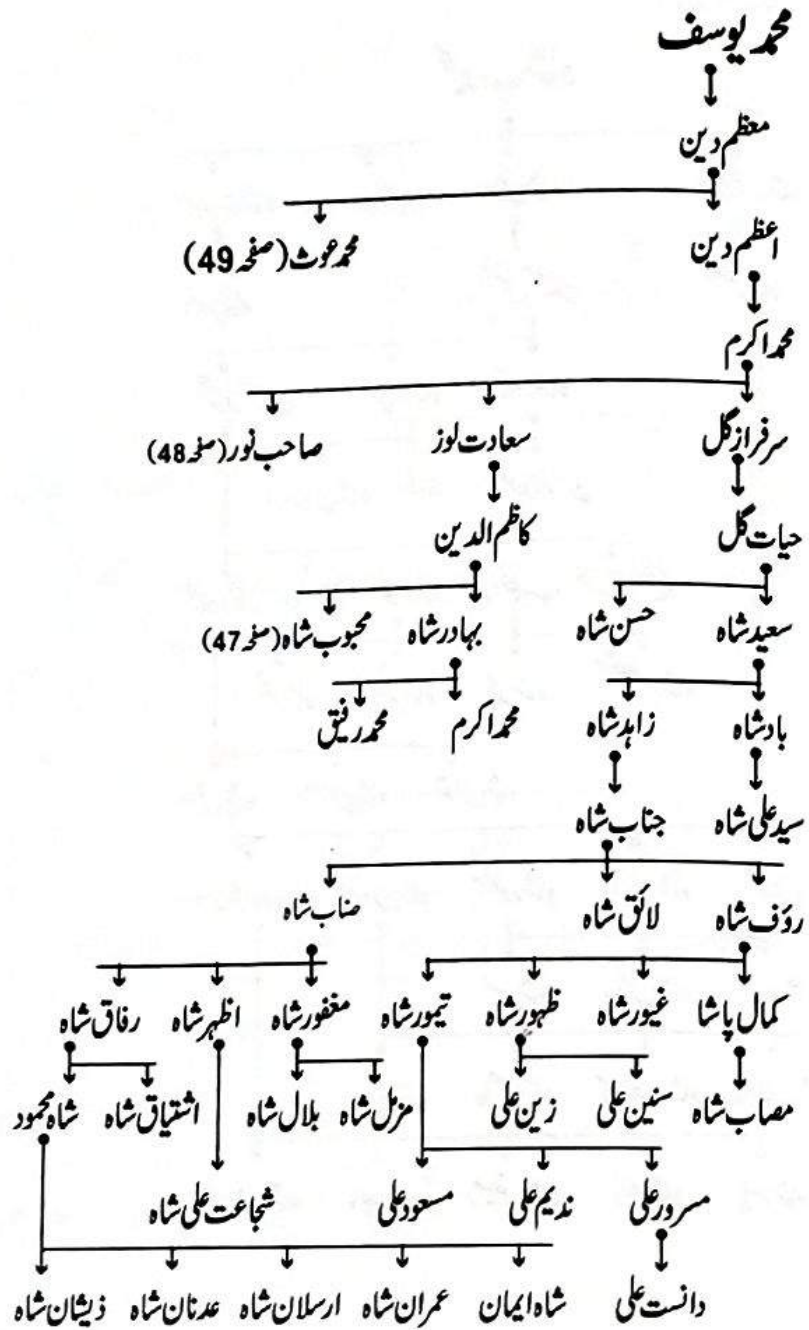 محمد یوسف
معظم دین
اعظم دین محمد غوث (صفحہ 49)
محمد اکرم
سرفراز گل سعادت لوز صاحب نور (صفحہ 48)
حیات گل کاظم الدین
سعید شاہ حسن شاہ بہادر شاہ محبوب شاہ (صفحہ 47)
بادشاہ زاہد شاہ محمد اکرم محمد رفیق
سید علی شاہ جناب شاہ
رؤف شاہ لائق شاہ صناب شاہ
کمال پاشا غیور شاہ ظہور شاہ تیمور شاہ مغفور شاہ اظہر شاہ رفاق شاہ
مصاب شاہ سنین علی زین علی مزمل شاہ بلال شاہ اشتیاق شاہ شاہ محمود
مسرور علی ندیم علی مسعود علی شجاعت علی شاہ
دانست علی شاہ ایمان عمران شاہ ارسلان شاہ عدنان شاہ ذیشان شاہ